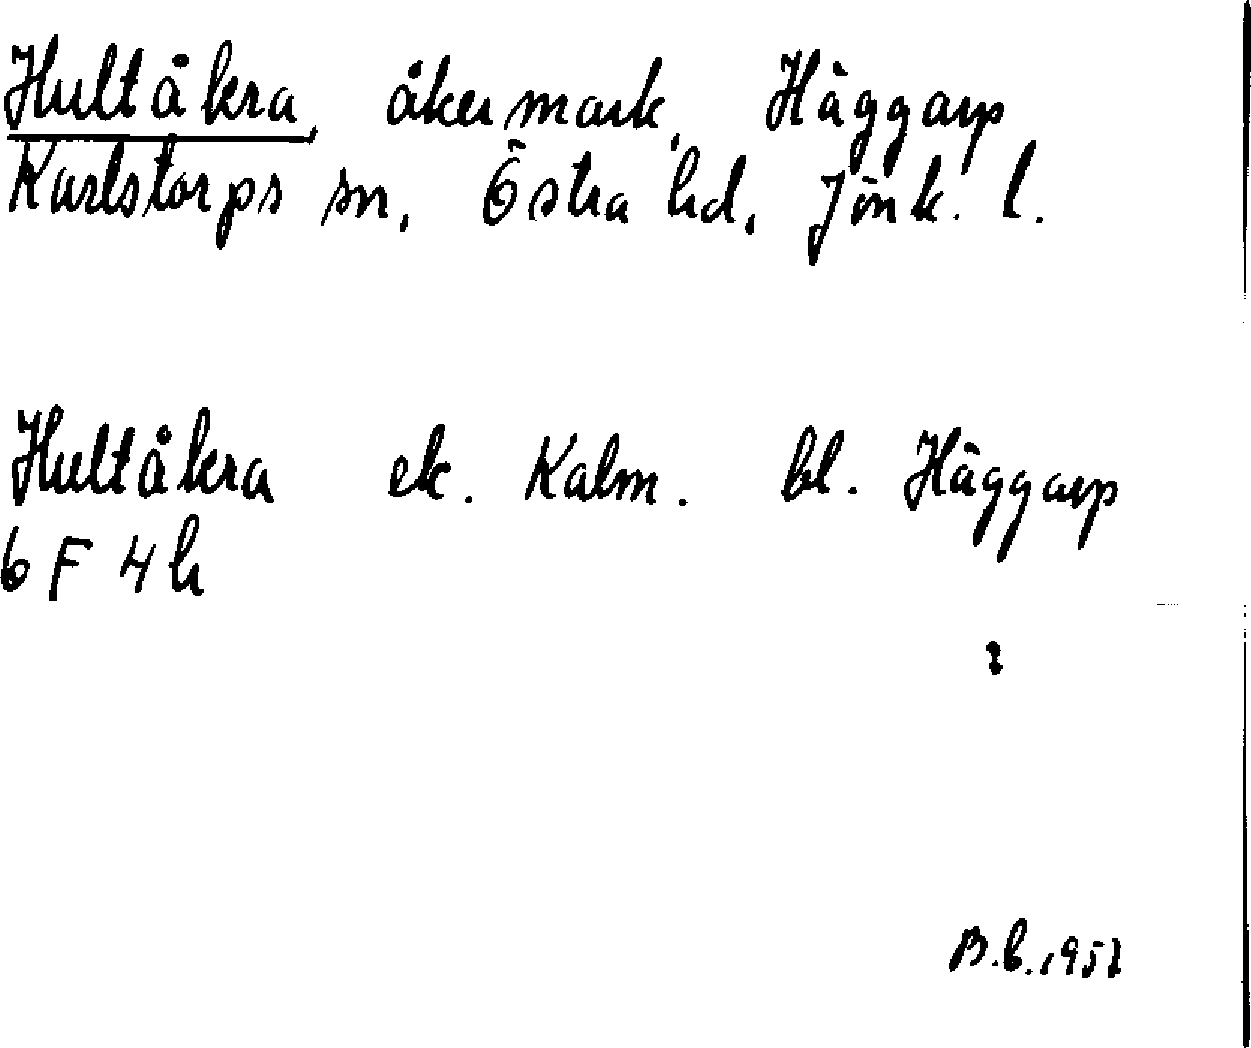 Hultåkra, åkermark, Häggarp
Karlstorps sn, Östra hd, Jönk. l.
Hultåkra ek. Kalm. bl. Häggarp
6 F 4 h
B.b. 1952